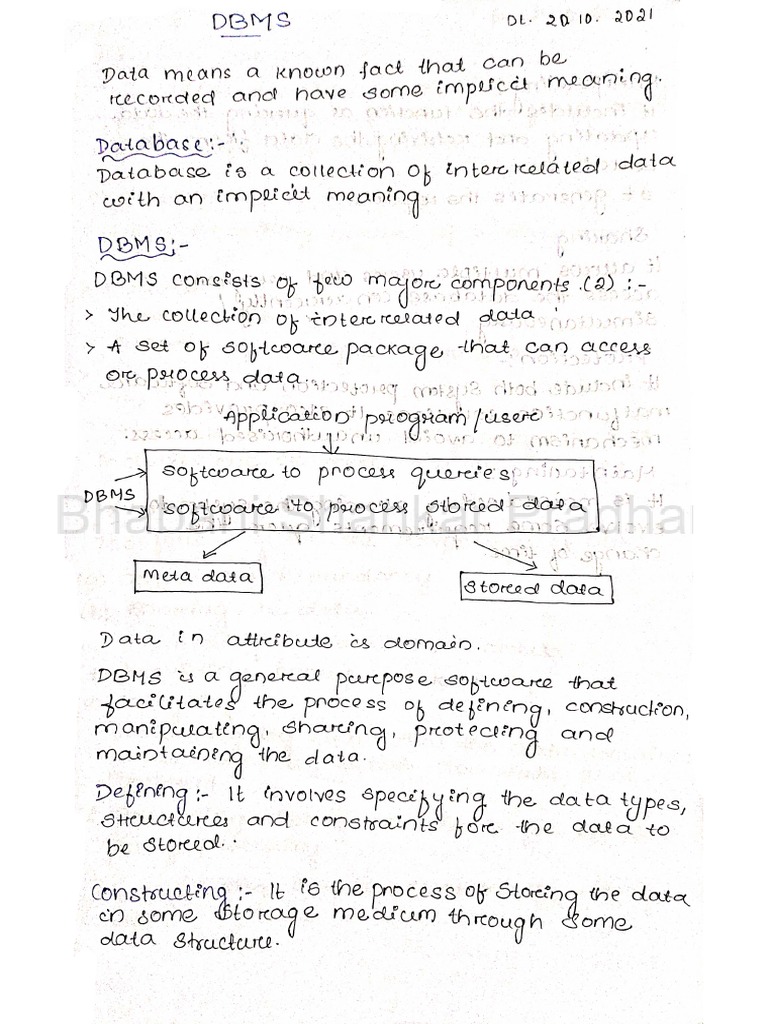 DBMS
Dt. 20.10.2021
Data means a known fact that can be
recorded and have some implicit meaning.
Database:-
Database is a collection of interrelated data
with an implicit meaning
DBMS:-
DBMS consists of few major components (2) :-
> The collection of interrelated data
> A set of software package that can access
or process data.
Application program/user
software to process queries
DBMS
software to process stored data
Meta data
Stored data
Data in attribute is domain.
DBMS is a general purpose software that
facilitates the process of defining, construction,
manipulating, sharing, protecting and
maintaining the data.
Defining:- It involves specifying the data types,
structures and constraints for the data to
be stored.
Constructing:- It is the process of storing the data
in some storage medium through some
data structure.